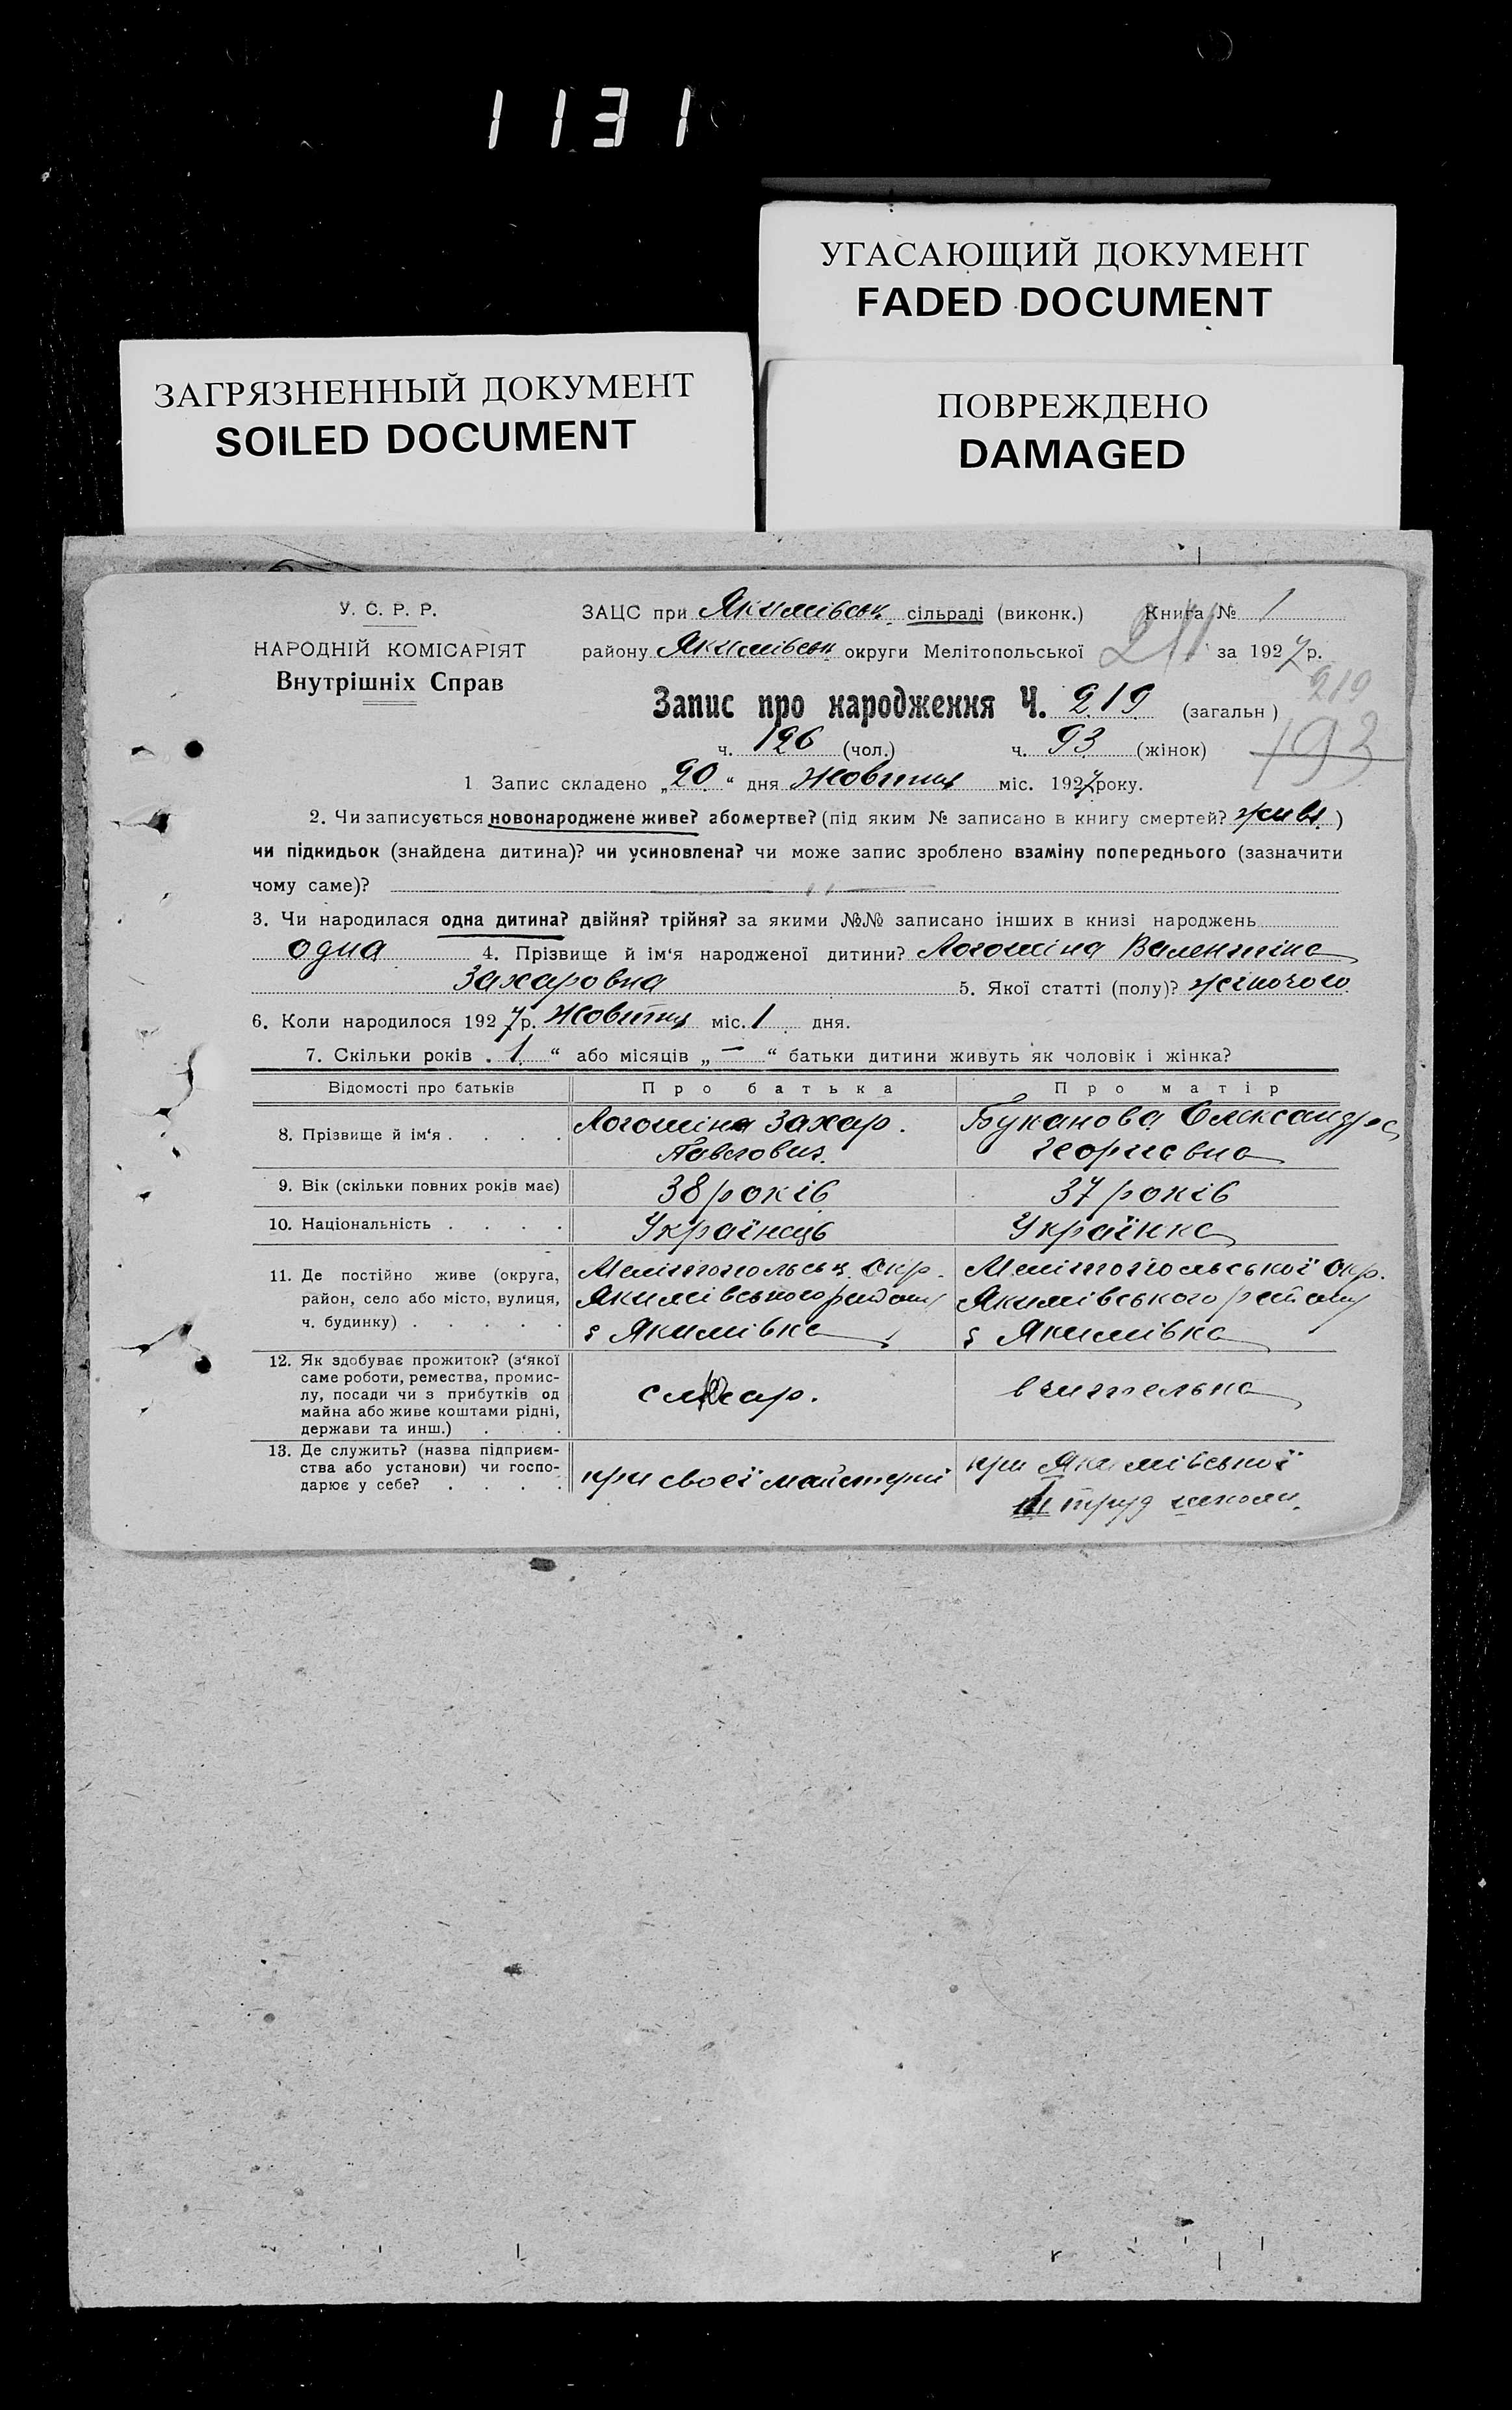 1131
УГАСАЮЩИЙ ДОКУМЕНТ
FADED DOCUMENT
ЗАГРЯЗНЕННЫЙ ДОКУМЕНТ
SOILED DOCUMENT
ПОВРЕЖДЕНО
DAMAGED
У. С. Р. Р.
НАРОДНІЙ КОМІСАРІЯТ
Внутрішніх Справ
ЗАЦС при Якимівськ. сільраді (виконк.) Книга № 1
району Якимівськ округи Мелітопольської 211 за 1927 р.
219
Запис про народження Ч. 219 (загальн)
193
ч. 126 (чол.) ч. 93 (жінок)
1 Запис складено „20“ дня Жовтня міс. 1927 року.
2. Чи записується новонароджене живе? або мертве? (під яким № записано в книгу смертей? живе)
чи підкидьок (знайдена дитина)? чи усиновлена? чи може запис зроблено взаміну попереднього (зазначити
чому саме)?
3. Чи народилася одна дитина? двійня? трійня? за якими №№ записано інших в книзі народжень
одна 4. Прізвище й ім‘я народженої дитини? Логошіна Валентіна
Захаровна 5. Якої статті (полу)? жіночого
6. Коли народилося 1927 р. Жовтня міс. 1 дня.
7. Скільки років „1“ або місяців „—“ батьки дитини живуть як чоловік і жінка?
Відомості про батьків Про батька Про матір
8. Прізвище й ім‘я . . . . Логошін Захар. Павлович. Буканова Олександра Георгиєвна
9. Вік (скільки повних років має) 38 років 37 років
10. Національність . . . . Українець Українка
11. Де постійно живе (округа, Мелітопольськ. Окр. Мелітопольської Окр.
район, село або місто, вулиця, Якимівського району Якимівського району
ч. будинку) . . . . . с Якимівка с Якимівка
12. Як здобуває прожиток? (з‘якої
саме роботи, ремества, промис-
лу, посади чи з прибутків од слюсар. вчителька
майна або живе коштами рідні,
держави та инш.) . .
13. Де служить? (назва підприєм-
ства або установи) чи госпо- при своєї майстерні при Якимівської
дарює у себе? . . . . труд школи.